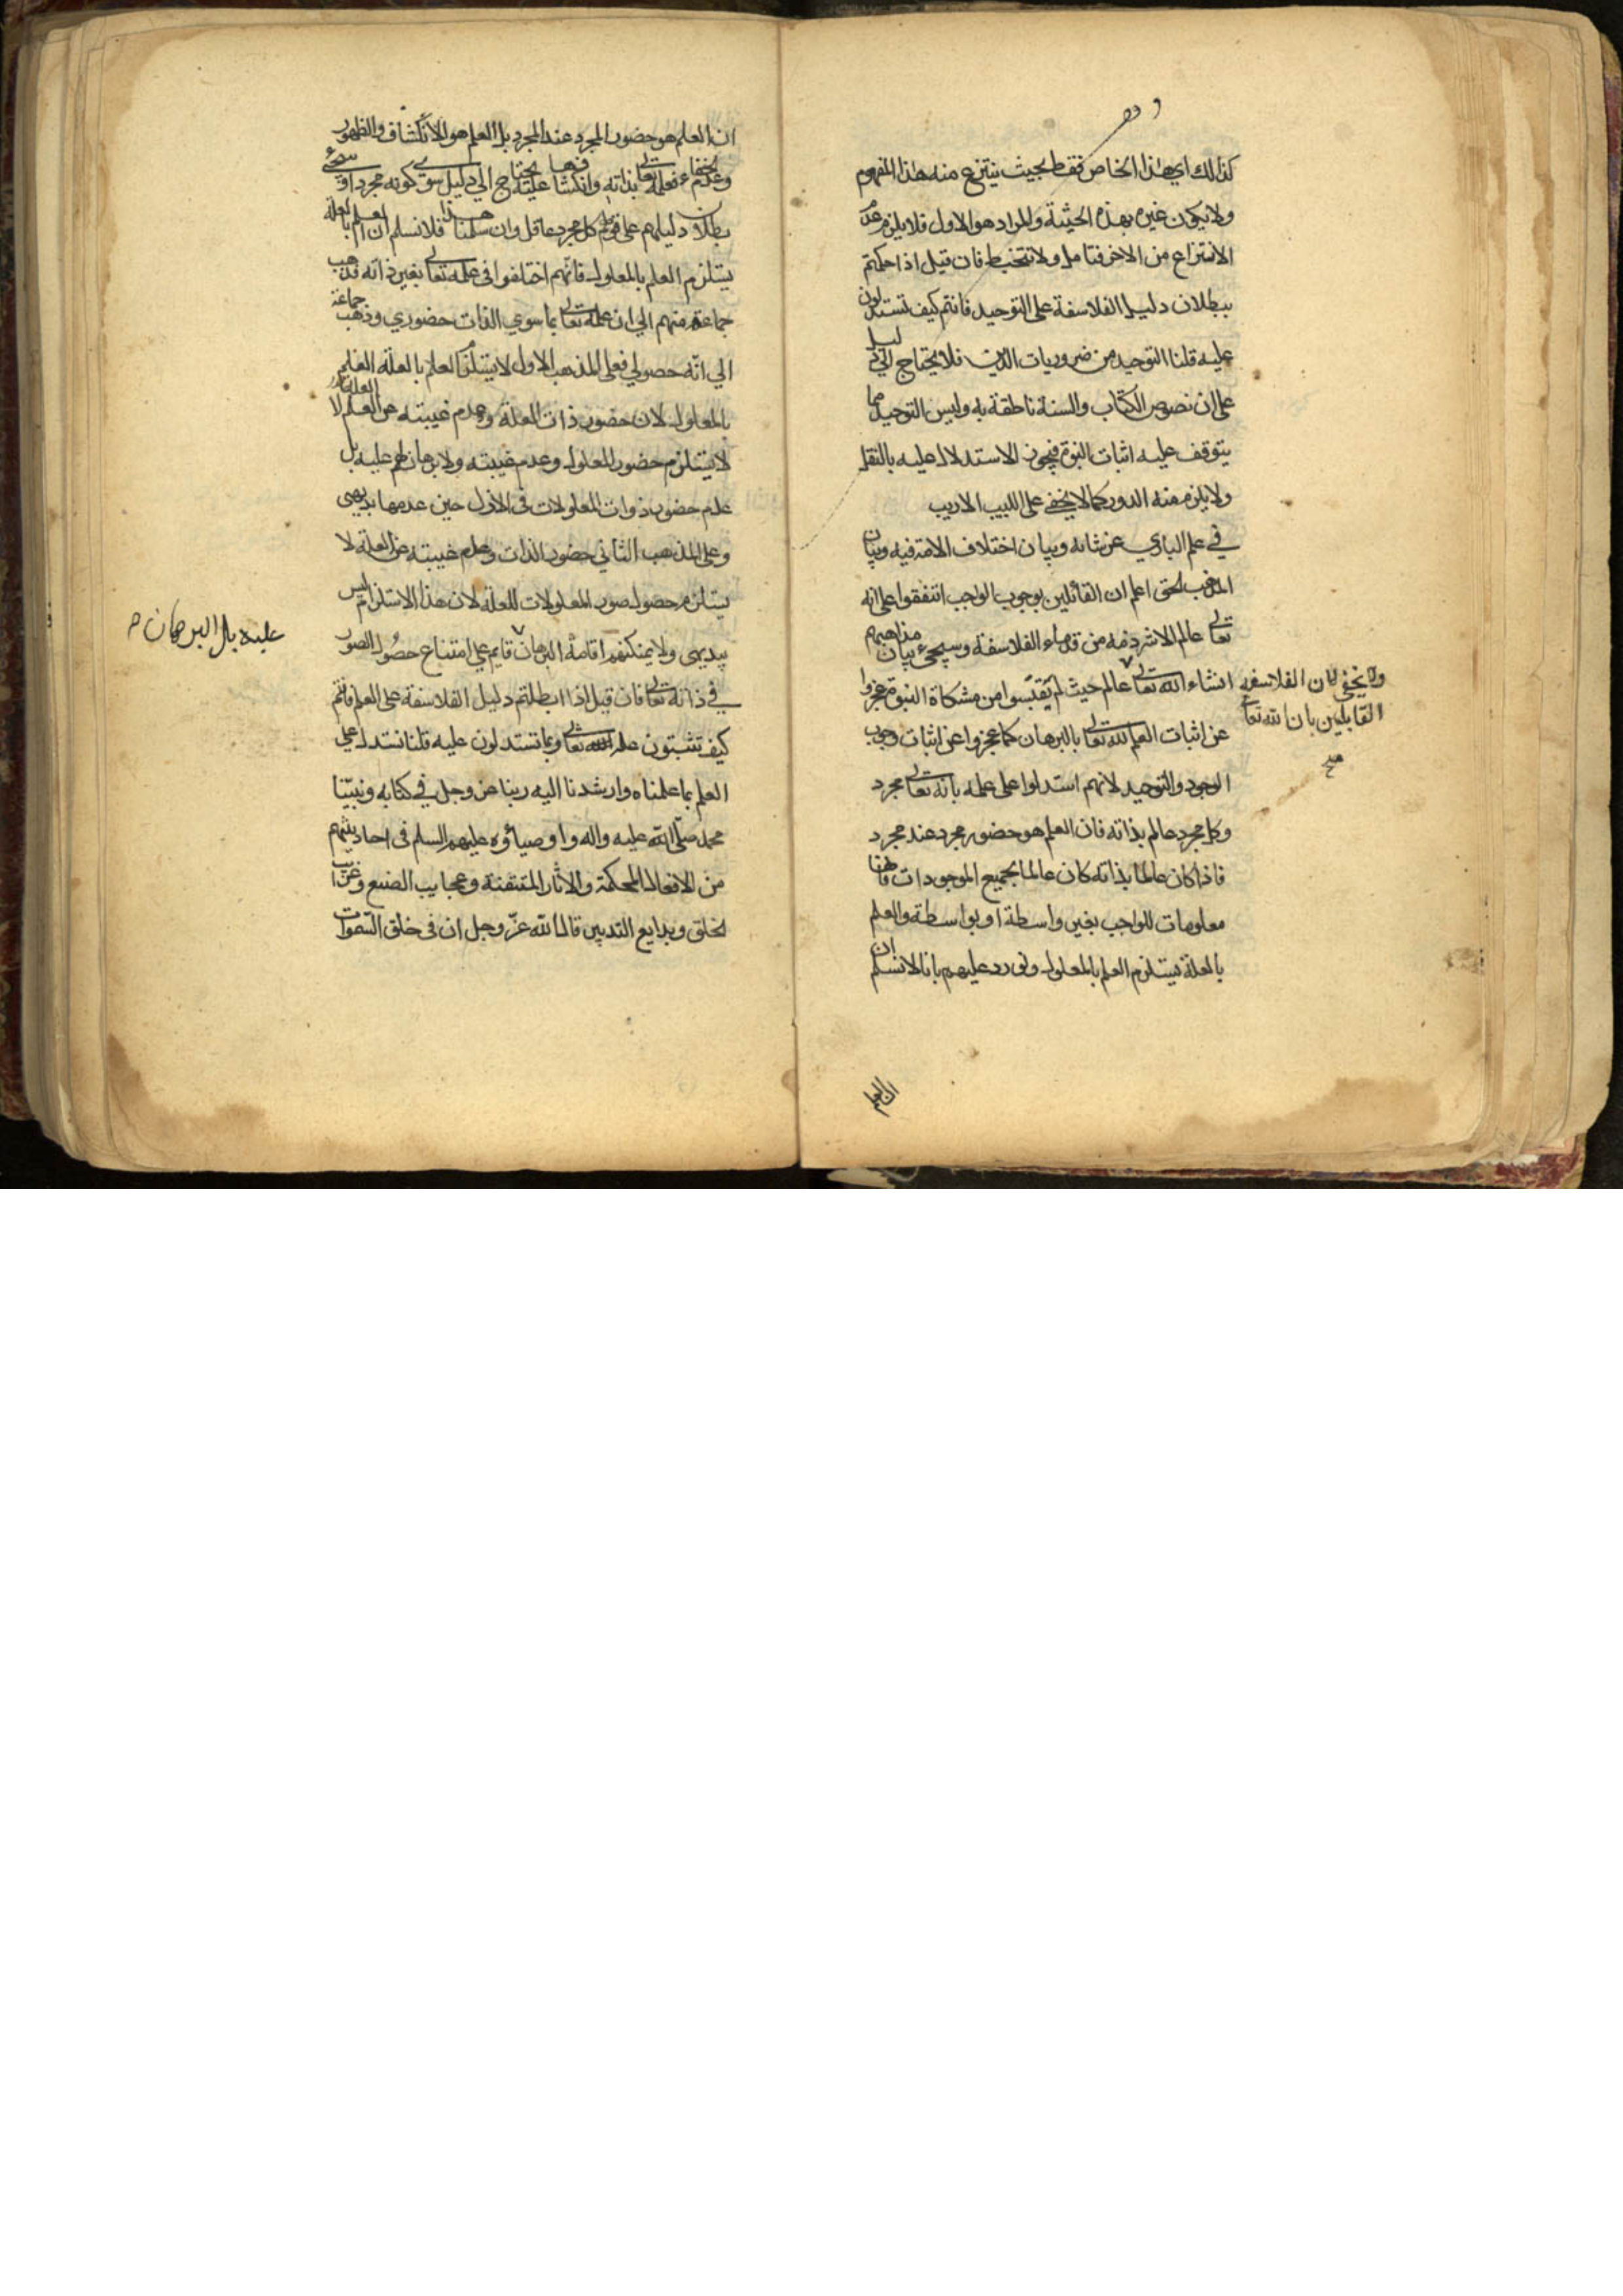 كذلك اي هذا الخاص فقط بحيث ينتزع منه هذا المفهوم
ولا يكون غيره بهذه الحيثية والمراد هو الاول فلا يلزم عدم
الانتزاع من الاخر فتامل ولا تتخبط فان قيل اذا حكمتم
ببطلان دليل الفلاسفة على التوحيد فانتم كيف تستدلون
عليه قلنا التوحيد من ضروريات الدين فلا يحتاج الى دليل
على ان نصوص الكتاب والسنة ناطقة به وليس التوحيد مما
يتوقف عليه اثبات النبوة فيجوز الاستدلال عليه بالنقل
ولا يلزم منه الدور كما لا يخفى على اللبيب الاريب
في علم الباري عز شانه وبيان اختلاف الامة فيه وبيان
المذهب الحق اعلم ان القائلين بوجوب الواجب اتفقوا على انه
تعالى عالم الا شرذمة من قدماء الفلاسفة وسيجيء بيان مذاهبهم
انشاء الله تعالى عالم حيث لم يقتبسوا من مشكاة النبوة عجزوا
ولا يخفى ان الفلاسفه
القايلين بان الله تعالى
صح
عن اثبات العلم لله تعالى بالبرهان كما عجزوا عن اثبات وجوب
الوجود والتوحيد لانهم استدلوا على علمه بانه تعالى مجرد
وكل مجرد عالم بذاته فان العلم هو حضور مجرد عند مجرد
فاذا كان عالما بذاته كان عالما بجميع الموجودات فانها
معلومات للواجب بغير واسطة او بواسطة والعلم
بالعلة يستلزم العلم بالمعلول ونورد عليهم بانا لا نسلم ان
ان العلم
ان العلم هو حضور المجرد عند المجرد بل العلم هو الانكشاف والظهور
وعدم الخفاء فعلمه تعالى بذاته وانكشافها عليه يحتاج الى دليل سوى كونه مجردا وسيجيء
بطلان دليلهم على قولهم كل مجرد عاقل وان سلمنا هذا فلا نسلم ان العلم بالعلة
يستلزم العلم بالمعلول فانهم اختلفوا في علمه تعالى بغير ذاته فذهب
جماعة منهم الي ان علمه تعالى بما سوي الذات حضوري وذهب جماعة
الي انه حصولي فعلى المذهب الاول لا يستلزم العلم بالعلة العلم
بالمعلول لان حضور ذات العلة وعدم غيبته عن العلم لا
لا يستلزم حضور المعلول وعدم غيبته ولا برهان لهم عليه بل
عدم حضور ذوات المعلولات في الازل حين عدمها بديهي
وعلى المذهب الثاني حضور الذات وعدم غيبته عن العلة لا
يستلزم حصول صور المعلولات للعلة لان هذا الاستلزام ليس
ببديهي ولا يمكنهم اقامة البرهان قايم على امتناع حصول الصور
عليه بل البرهان
في ذاته تعالى فان قيل اذا ابطلتم دليل الفلاسفة على العلم فانتم
كيف تثبتون علم الله تعالى وبما تستدلون عليه قلنا نستدل على
العلم بما علمناه وارشدنا اليه ربنا عز وجل في كتابه ونبينا
محمد صلى الله عليه واله واوصياؤه عليهم السلم في احاديثهم
من الافعال المحكمة والاثار المتقنة وعجايب الصنع وغرايب
الخلق وبدايع التدبير قال الله عز وجل ان في خلق السموات